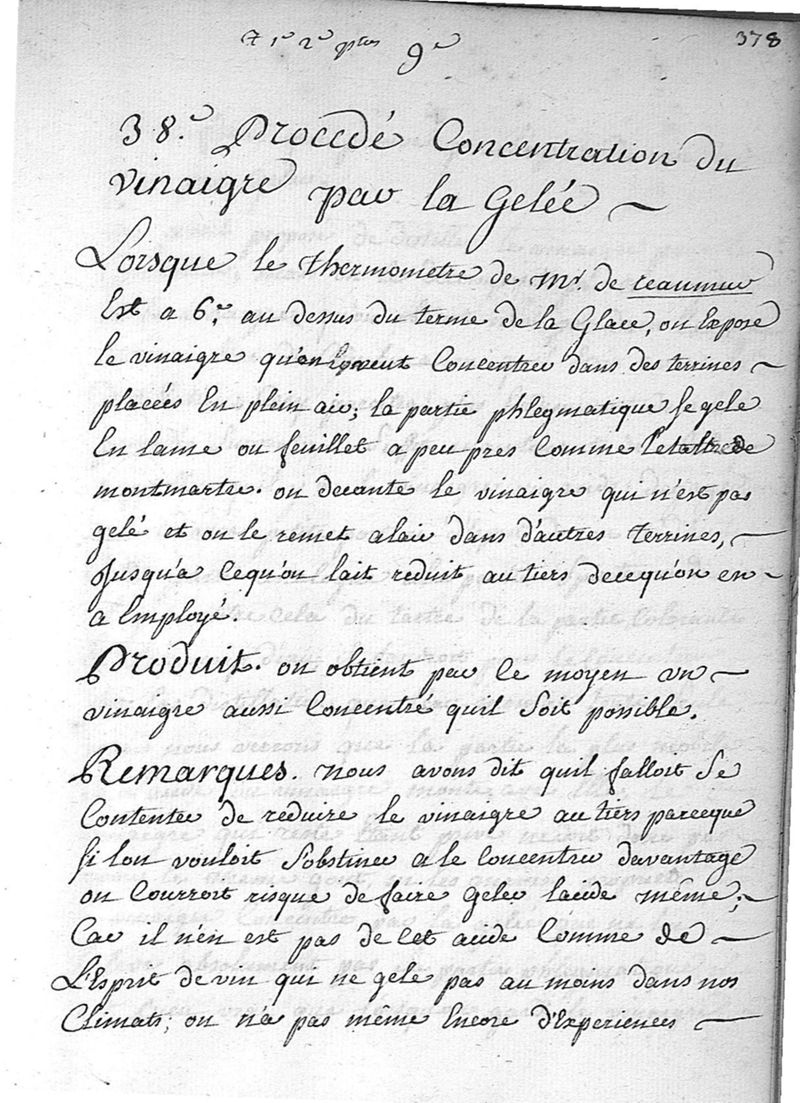 378
7 1e 2e ptes 9e
38.e Procedé Concentration du
vinaigre par la Gelée ~
Lorsque le thermometre de mr. de reaumur
Est a 6.e au dessus du terme de la Glace, on Expose
le vinaigre qu'on veut Concentrer dans des terrines ~
placées En plein air; la partie phlegmatique se gele
En lame ou feuillet a peu pres Comme le talc de
montmartre. on decante le vinaigre qui n'est pas
gelé et on le remet alair dans d'autres terrines, ~
Jusqu'a Cequ'on lait reduit au tiers decequ'on en ~
a Employé.
Produit. on obtient par Ce moyen un ~
vinaigre aussi Concentré quil Soit possible.
Remarques. nous avons dit quil falloit Se
Contenter de reduire le vinaigre au tiers parceque
Si lon vouloit S'obstiner a le Concentrer davantage
on Courroit risque de faire geler lacide même; ~
Car il n'en est pas de Cet acide Comme de ~
L'Esprit de vin qui ne gele pas au moins dans nos
Climats; on n'a pas même Encore d'Experiences ~